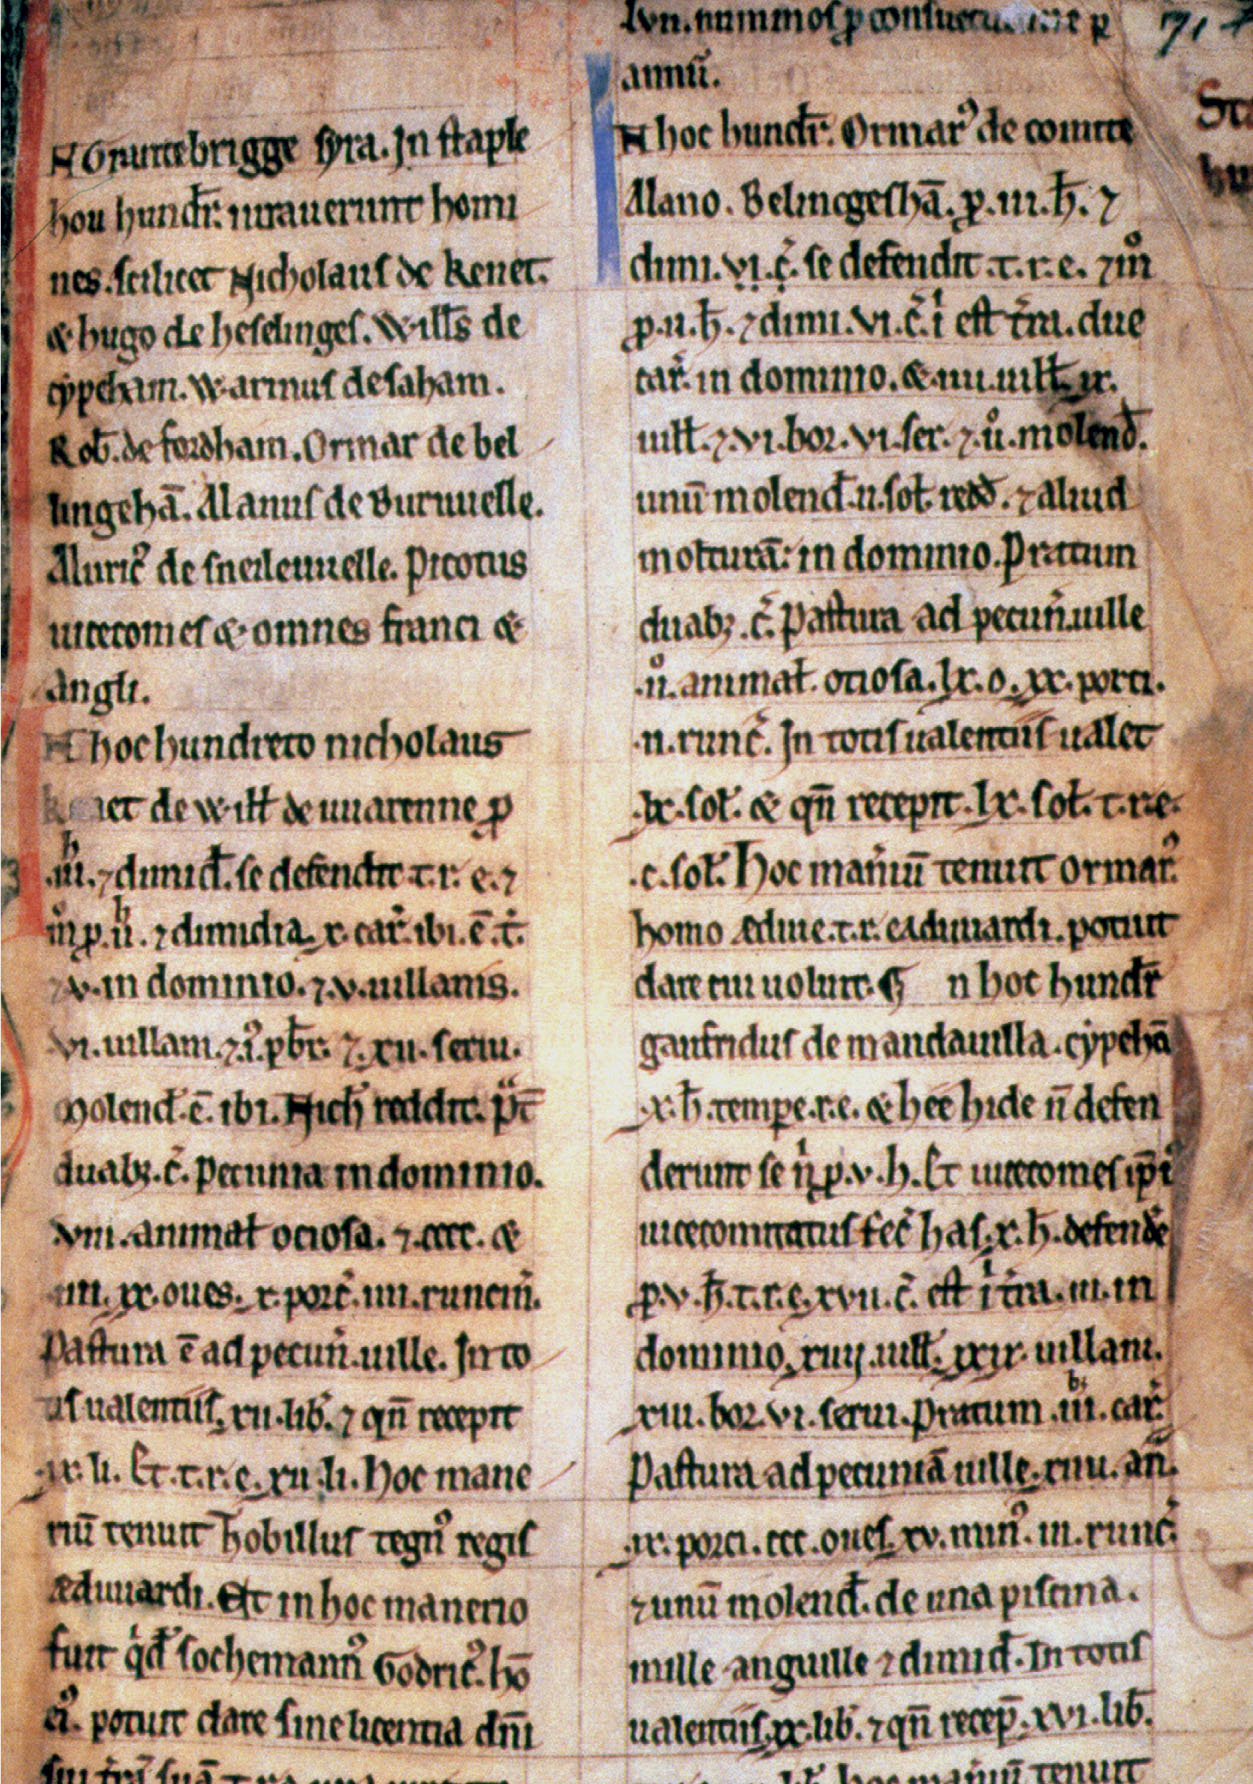 N Gruntebrigge syra. In staple
hou hundr̄. iurauerunt homi
nes. scilicet Nicholaus de kenet.
& hugo de heselinges. Willm̄s de
cypeham. Warinus de saham.
Rob̄. de fordham. Ormar de bel
lingehā. Alanus de Burnuuelle.
Aluric᾽ de sneileuuelle. Picotus
uicecomes & omnes franci &
Angli.
N hoc hundreto nicholaus
kenet de Will̄ de uuarenne p̱
.iii. h ⁊ dimid̄. se defendit .t.r.e. ⁊
m̊ p̱ .ii. h ⁊ dimidia. x. car̄. ibi. ē. t̄.
⁊ v. in dominio. ⁊ .v. uillanis.
vi. uillani. ⁊ .i. pb̄r. ⁊ .xii. serui.
Molend̄. ē. ibi. Nich̄ reddit.
duab; .c̄. Pecunia in dominio.
viii. animal̄ ociosa. ⁊ .cccc. &
.iiii. xx. oues. x. porc̄. iiii. runcin̄.
Pastura ē ad pecun̄. uille. In to
tis ualentiis. xii. lib̄. ⁊ qn̄ recepit
.ix. li. Et .t.r.e. xii. li. hoc mane
riū tenuit hobillus tegn᾽ regis
Ædwardi. Et in hoc manerio
fuit qͥd̄ sochemann᾽ Godric᾽. hō
ei᾽. potuit dare sine licentia dn̄i
sui t̄rā suā
lvn. nummos p̱ consuetudine p̱
annū.
N hoc hundr̄. Ormar᾽ de comite
Alano. Belincgeshā. p̱ .iii. h̄. ⁊
dimi. vi. c̄. se defendit .t.r.e. ⁊ m̊
p̱ .ii. h̄. ⁊ dimi. vi. c̄. i est t̄ra. due
car̄. in dominio. & .iiii. uill̄. ix.
uill̄. ⁊ .vi. bor. vi. ser. ⁊ .iiͦ. molend̄.
unū molend̄. ii. sol̄. redd̄. ⁊ aliud
molturā: in dominio. Pratum
duab; .c̄. Pastura ad pecun̄. uille
.iiͦ. animal̄. ociosa. lx. o. xx. porci.
.ii. runc̄. In totis ualentiis ualet
.lx. sol̄. & qn̄ recepit. lx. sol̄. t.r.e.
.c. sol̄. hoc man̄iū tenuit ormar᾽
homo ædiue .t.r. eaduuardi. potuit
dare cui uoluit. n hoc hundr̄
gaufridus de mandauilla. cypehā
.x. h̄. tempe.r.e. & hee hide n̄ defen
derunt se n̄ p̱ .v. h. Et uicecomes ip̄iꝰ
uicecomitatus fec̄ has. x. h̄. defende
p̱ .v. h̄. t.r.e. xvii. c̄. est i t̄ra. iii. in
dominio. xiiij. uill̄. xxix. uillani.
xiii. bor. vi. serui. Pratum .iii. car̄.
Pastura ad pecuniā uille. xiiii. an̄.
.ix. porci. ccc. oues. xv. min᾽. iii. runc̄.
⁊ unū molend̄. de una piscina.
mille anguille ⁊ dimid̄. In totis
ualentiis. xx. lib̄. ⁊ qn̄ recep̄. xvi. lib̄.
hoc man̄iū tenuit